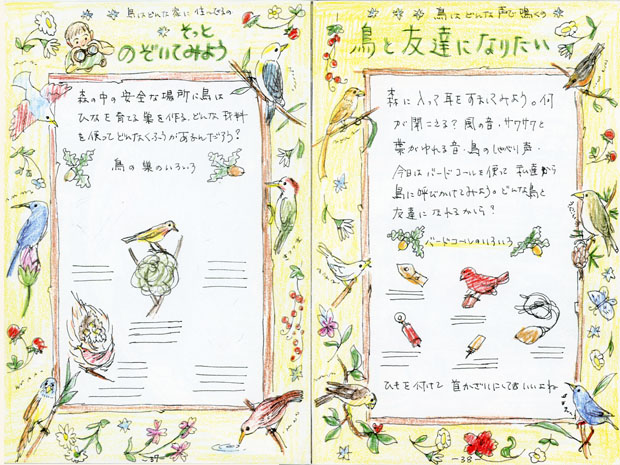 鳥はどんな家に住んでるの
そっと
のぞいてみよう
森の中の安全な場所に鳥は
ひなを育てる巣を作る。どんな材料
を使ってどんなくふうがあるんだろう?
鳥の巣のいろいろ
-37-
鳥はどんな声で鳴くの
鳥と友達になりたい
森に入って耳をすましてみよう。何
が聞こえる?風の音・サワサワと
葉がゆれる音・鳥のしゃべり声・
今日はバードコールを使って私達から
鳥に呼びかけてみよう。どんな鳥と
友達になれるかしら?
バードコールのいろいろ
ひもを付けて首かざりにしてもいいよね
-38-